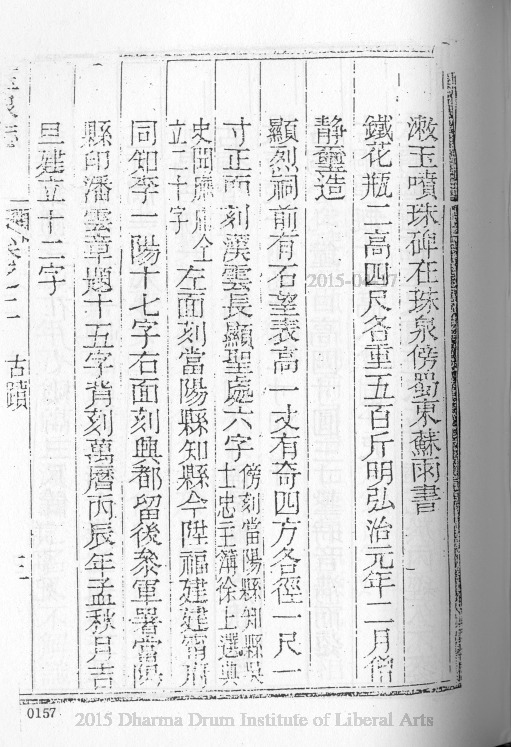 漱玉噴珠碑在珠泉傍蜀東蘇雨書
鐵花瓶二高四尺各重五百斤明弘治元年二月僧
靜璽造
顯烈祠前有石望表高一丈有奇四方各徑一尺一
寸正面刻漢雲長顯聖處六字傍刻當陽縣知縣吳
士忠主簿徐上選典
史閻應
立二十字左面刻當陽縣知縣今陞福建建甯府
同知李一陽十七字右面刻興都留後叅軍署當陽
縣印潘雲章題十五字背刻萬曆丙辰年孟秋月吉
旦建立十二字
古蹟
三
2015-04-07
0157
2015 Dharma Drum Institute of Liberal Arts